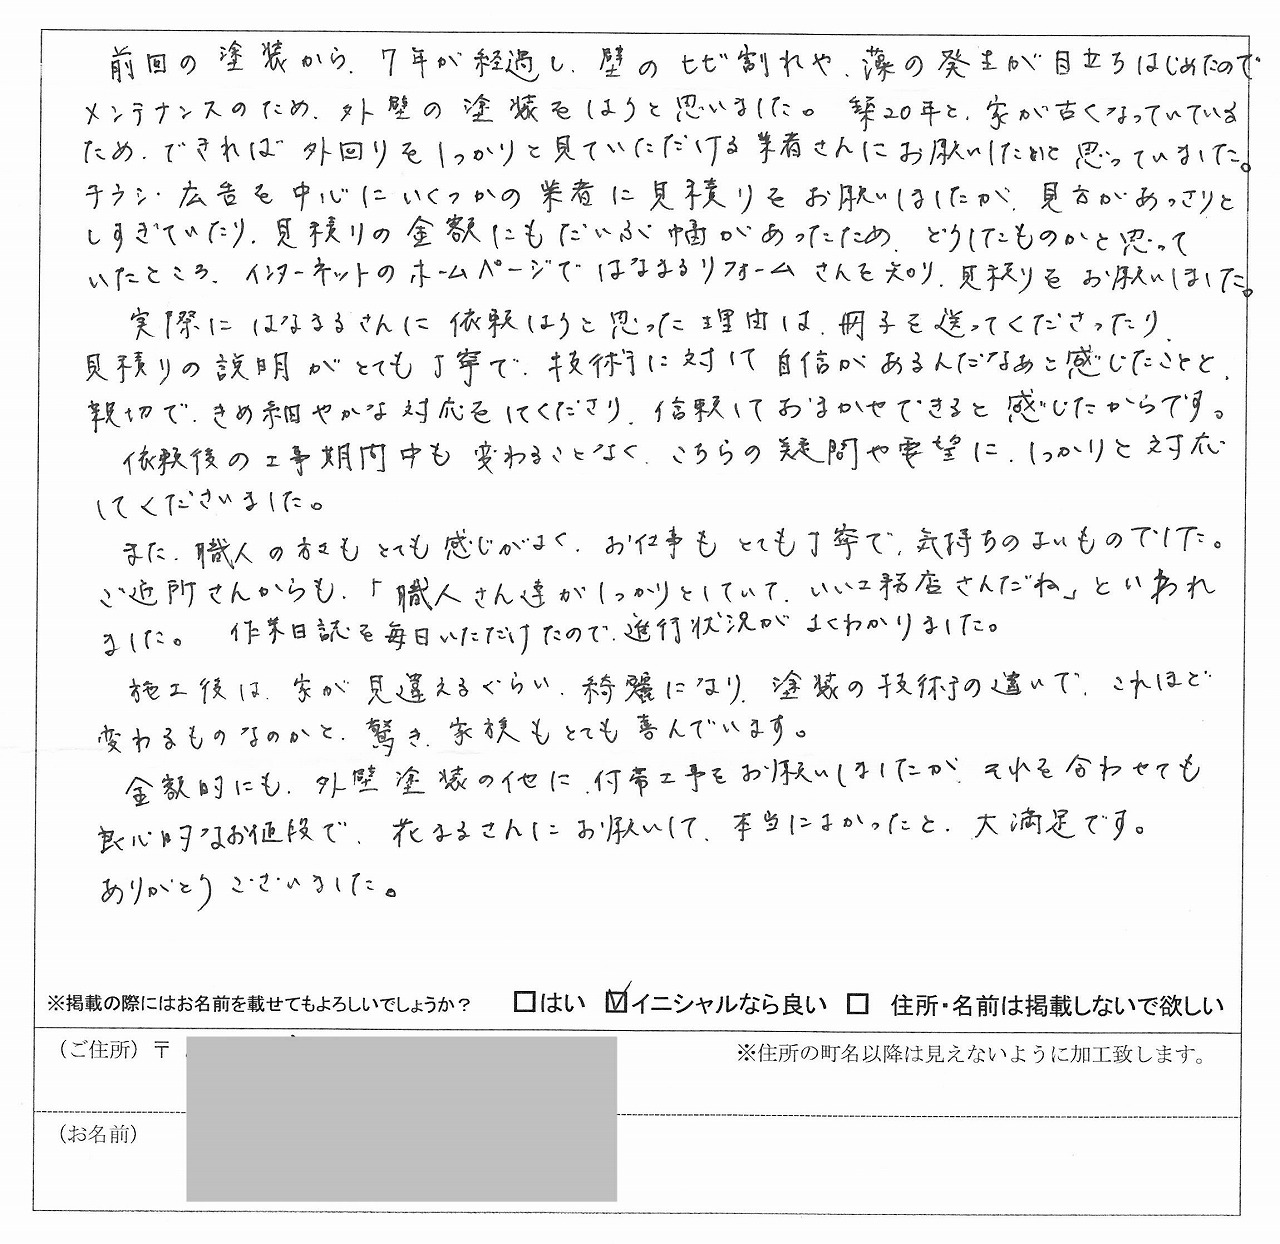 前回の塗装から、7年が経過し、壁のヒビ割れや、藻の発生が目立ちはじめたので
メンテナンスのため、外壁の塗装をしようと思いました。 築20年と、家が古くなっている
ため、できれば外回りをしっかりと見ていただける業者さんにお願いしたいと思っていました。
チラシ・広告を中心にいくつかの業者に見積りをお願いしましたが、見方があっさりと
しすぎていたり、見積りの金額にもだいぶ幅があったため、どうしたものかと思って
いたところ、インターネットのホームページではなまるリフォームさんを知り、見積りをお願いしました。
実際にはなまるさんに依頼しようと思った理由は、冊子を送ってくださったり、
見積りの説明がとても丁寧で、技術に対して自信があるんだなあと感じたことと、
親切で、きめ細やかな対応をしてくださり、信頼しておまかせできると感じたからです。
依頼後の工事期間中も変わることなく、こちらの疑問や要望に、しっかりと対応
してくださいました。
また、職人の方もとても感じがよく、お仕事もとても丁寧で、気持ちのよいものでした。
ご近所さんからも、「職人さん達がしっかりとしていて、いい工務店さんだね」といわれ
ました。 作業日誌を毎日いただけたので、進行状況がよくわかりました。
施工後は、家が見違えるぐらい、綺麗になり、塗装の技術の違いで、これほど
変わるものなのかと、驚き、家族もとても喜んでいます。
金額的にも、外壁塗装の他に、付帯工事をお願いしましたが、それを合わせても
良心的なお値段で、花まるさんにお願いして、本当によかったと、大満足です。
ありがとうございました。
※掲載の際にはお名前を載せてもよろしいでしょうか? □はい ☑イニシャルなら良い □ 住所・名前は掲載しないで欲しい
（ご住所）〒 ※住所の町名以降は見えないように加工致します。
（お名前）